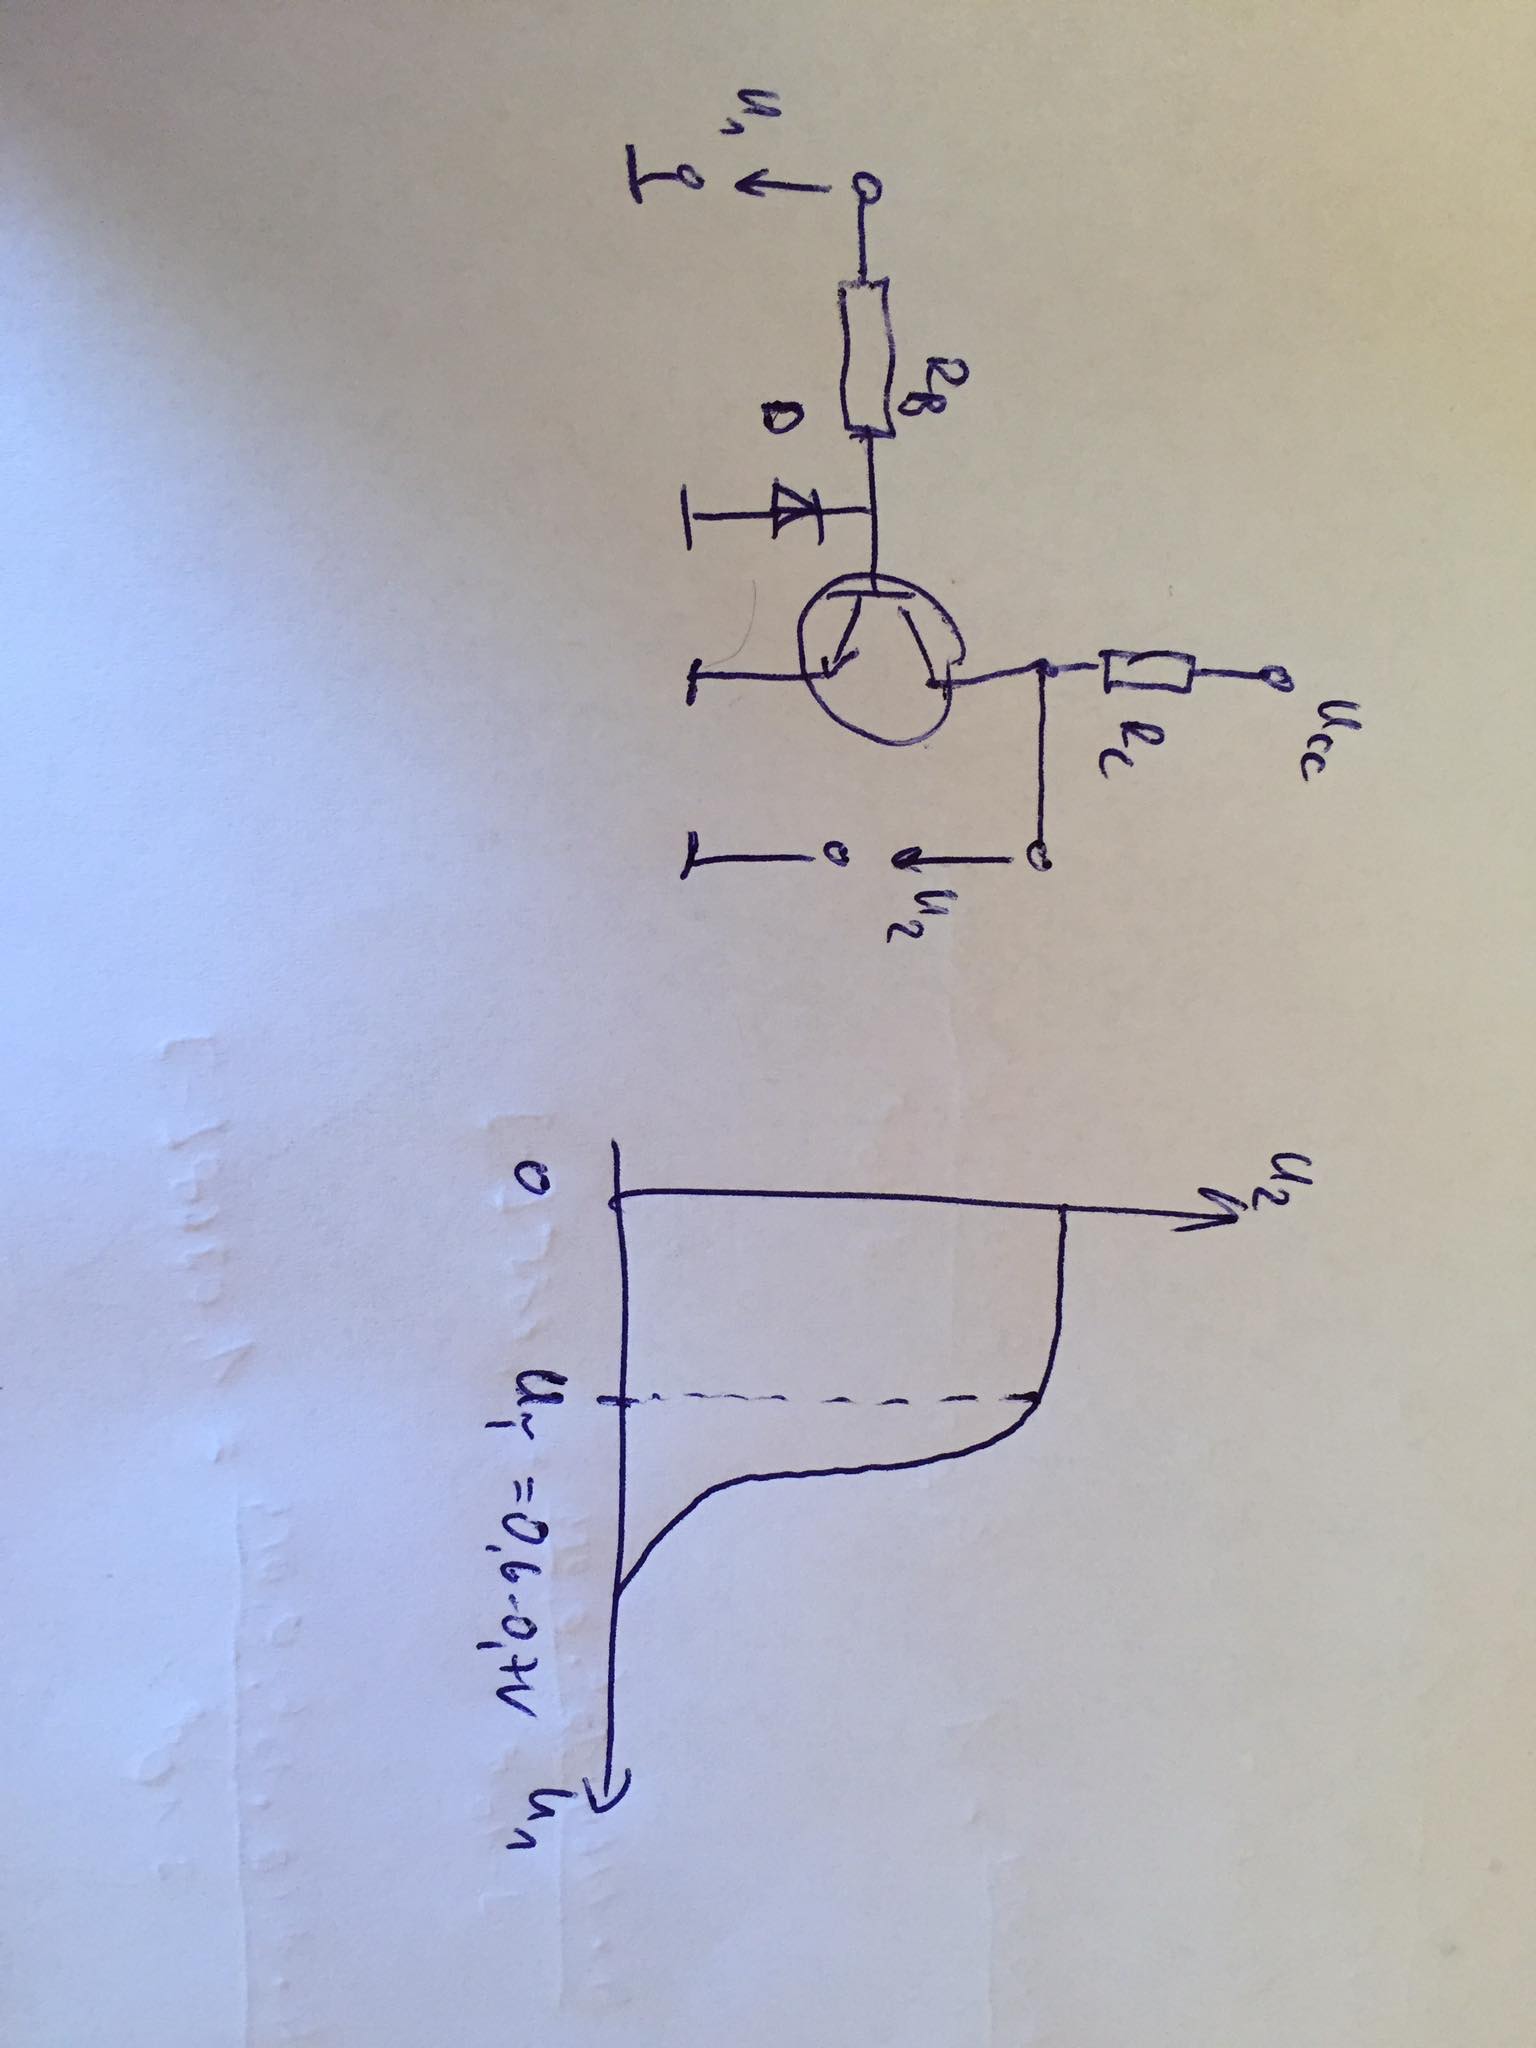 Ucc
Rc
RB
D
U1
U2
U2
0
UT = 0,6-0,7V
U1